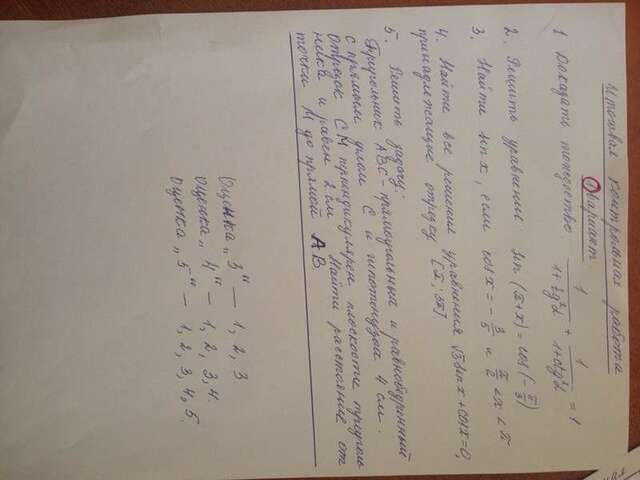 Итоговая контрольная работа
1 вариант
1 Доказать тождество. 1/(1+tg²α) + 1/(1+ctg²α) = 1
2. Решить уравнение: sin(π+x) = cos(-π/3)
3. Найти sin x, если cos x = -3/5 и π/2 < x < π
4. Найти все решения уравнения √3 sin x + cos x = 0,
принадлежащие отрезку [π; 3π]
5. Решить задачу:
Треугольник ABC - прямоугольный и равнобедренный
с прямым углом C и гипотенузой 4 см.
Отрезок CM перпендикулярен плоскости треуголь
ника и равен 2 см Найти расстояние от
точки M до прямой AB
Оценка „3" — 1, 2, 3
Оценка „4" — 1, 2, 3, 4.
Оценка „5" — 1, 2, 3, 4, 5.